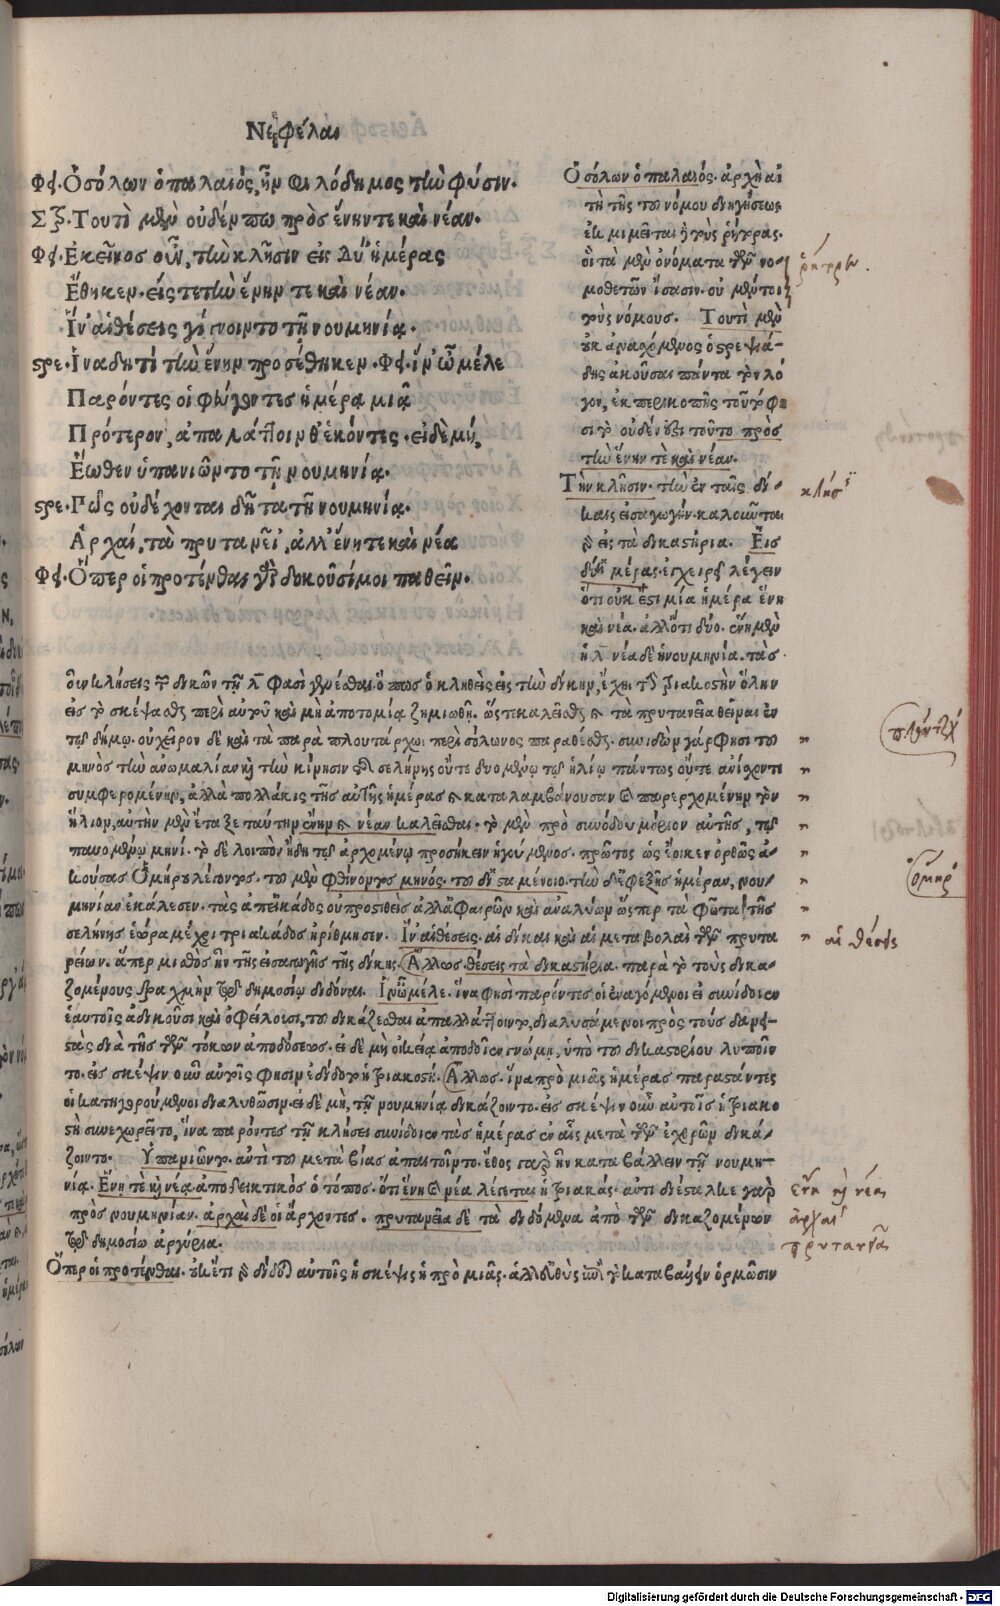 Νεφέλαι
Φϕ. Ὁ σόλων ὁ παλαιός, ἦν φιλόδημος τὴν φύσιν.
Στρ. Τουτὶ μὲν οὐδέν πω πρὸς ἕνην τε καὶ νέαν.
Φϕ. Ἐκεῖνος οὖν, τὴν κλῆσιν εἰς δύ' ἡμέρας
Ἔθηκεν. εἴς τε τὴν ἕνην τε καὶ νέαν.
Ἵν' αἱ θέσεις γίγνοιντο τῇ νουμηνίᾳ.
στρε. Ἵνα δὴ τί τὴν ἕνην προσέθηκεν. Φϕ. ἵν' ὦ μέλε
Παρόντες οἱ φεύγοντες ἡμέρᾳ μιᾷ
Πρότερον, ἀπαλάττοινθ' ἑκόντες. εἰ δὲ μή,
Ἕωθεν ὑπανιῶντο τῇ νουμηνίᾳ.
στρε. Πῶς οὐ δέχονται δῆτα τῇ νουμηνίᾳ.
Ἀρχαί, τὰ πρυτανεῖ', ἀλλ' ἕνῃ τε καὶ νέᾳ
Φϕ. Ὅπερ οἱ προτένθαι γὰρ δοκοῦσί μοι παθεῖν.
Ὁ σόλων ὁ παλαιός. ἀρχῆ αὕ
τη τῆς τοῦ νόμου διηγήσεως
ἐκμιμεῖται ἢ τοὺς ῥήτορας.
οἳ τὰ μὲν ὀνόματα τῶν νο-
μοθετῶν ἴσασιν. οὐ μέντοι
τοὺς νόμους. Τουτὶ μὲν
οὐκ ἀνασχόμενος ὁ στρεψιά-
δης ἀκοῦσαι πάντα τὸν λό
γον, ἐκ περικοπῆς τοῦτό φη
σι τὸ οὐδέν ἐστι τοῦτο πρὸς
τὴν ἕνην τε καὶ νέαν.
Τὴν κλῆσιν. τὴν ἐν ταῖς δί-
καις εἰσαγωγήν. καλοῦνται
γὰρ εἰς τὰ δικαστήρια. Εἰσ
δύ' ἡμέρας. ἐγχειρεῖ λέγειν
ὅτι οὐκ ἔστι μία ἡμέρα ἕνη
καὶ νέα. ἀλλ' ὅτι δύο. ἕνη μὲν
ἡ λ̄ νέα δὲ ἡ νουμηνία. τὰς
οὖν κλήσεις τῶν δικῶν τῇ λ̄ φασὶ γενέσθαι ὅπως ὁ κληθεὶς εἰς τὴν δίκην, ἔχῃ τὴν τριακοστὴν ὅλην
εἰς τὸ σκέψασθαι περὶ αὐτοῦ καὶ μὴ ἀποτομίᾳ ζημιωθῇ. ὥστε καλεῖσθαι καὶ τὰ πρυτανεῖα θεῖναι ἐν
τῷ δήμῳ. οὐ χεῖρον δὲ καὶ τὰ παρὰ πλουτάρχωι περὶ σόλωνος παραθέσθαι. συνιδὼν γάρ φησι τοῦ
μηνὸς τὴν ἀνωμαλίαν καὶ τὴν κίνησιν τῆς σελήνης οὔτε δυομένῳ τῷ ἡλίῳ πάντως οὔτε ἀνίσχοντι
συμφερομένην, ἀλλὰ πολλάκις τῆς αὐτῆς ἡμέρας καὶ καταλαμβάνουσαν καὶ παρερχομένην τὸν
ἥλιον, αὐτὴν μὲν ἔταξε ταύτην ἕνην καὶ νέαν καλεῖσθαι. τὸ μὲν πρὸ συνόδου μόριον αὐτῆς, τῷ
παυομένῳ μηνί. τὸ δὲ λοιπὸν ἤδη τῷ ἀρχομένῳ προσήκειν ἡγούμενος. πρῶτος ὡς ἔοικεν ὀρθῶς ἀ-
κούσας Ὁμήρου λέγοντος. τοῦ μὲν φθίνοντος μηνός. τοῦ δ' ἱσταμένοιο. τὴν δ' ἐφεξῆς ἡμέραν, νου-
μηνίαν ἐκάλεσεν. τὰς ἀπ' εἰκάδος οὐ προστιθεὶς ἀλλ' ἀφαιρῶν καὶ ἀναλύων ὥσπερ τὰ φῶτα τῆς
σελήνης ἑώρα μέχρι τριακάδος ἠρίθμησεν. Ἵν' αἱ θέσεις. αἱ δίκαι καὶ αἱ μεταβολαὶ τῶν πρυτα
νείων. ἅπερ μισθὸς ἦν τῆς εἰσαγωγῆς τῆς δίκης. Ἄλλως. θέσεις τὰ δικαστήρια. παρὰ τὸ τοὺς δικα-
ζομένους δραχμὴν τῷ δημοσίῳ διδόναι. Ἵν' ὦ μέλε. ἵνα φησὶ παρόντες οἱ ἐναγόμενοι εἰ συνίδοιεν
ἑαυτοῖς ἀδικοῦσι καὶ ὀφείλουσι, τοῦ δικάζεσθαι ἀπαλλάττοιντο, διαλυσάμενοι πρὸς τοὺς δανει-
στὰς διὰ τῆς τῶν τόκων ἀποδόσεως. εἰ δὲ μὴ οἰκείᾳ ἀποδοῖεν γνώμῃ, ὑπὸ τοῦ δικαστηρίου λυποῖν
το. εἰς σκέψιν οὖν αὐτοῖς φησιν ἐδίδοτο ἡ τριακοστή. Ἄλλως. ἵνα πρὸ μιᾶς ἡμέρας παραστάντες
οἱ κατηγορούμενοι διαλυθῶσιν. εἰ δὲ μὴ, τῇ νουμηνίᾳ δικάζοιντο. εἰς σκέψιν οὖν αὐτοῖς ἡ τριακο
στὴ συνεχωρεῖτο, ἵνα παρόντες τῇ κλήσει συνίδοιεν τὰς ἡμέρας ἐν αἷς μετὰ τῶν ἐχθρῶν δικά-
ζοιντο. Ὑπανιῶντο. ἀντὶ τοῦ μετὰ βίας ἀπαιτοῖντο. ἔθος γὰρ ἦν καταβάλλειν τῇ νουμη-
νίᾳ. Ἕνῃ τὲ καὶ νέᾳ ἀποδεικτικὸς ὁ τόπος. ὅτι ἕνη καὶ νέα λέγεται ἡ τριακάς. ἀντιδιέσταλκε γὰρ
πρὸς νουμηνίαν. ἀρχαὶ δὲ οἱ ἄρχοντες. πρυτανεῖα δὲ τὰ διδόμενα ἀπὸ τῶν δικαζομένων
τῷ δημοσίῳ ἀργύρια.
Ὅπερ οἱ προτένθαι. οὐκ ἔτι γὰρ δίδοται αὐτοῖς ἡ σκέψις ἡ πρὸ μιᾶς. ἀλλ' εὐθὺς ἐπὶ τὸ καταβαλεῖν ὁρμῶσιν
κλῆσ
Ὅμηρ
αἱ θέσεις
ἕνη καὶ νέα
ἀρχαί
πρυτανεῖα
Digitalisierung gefördert durch die Deutsche Forschungsgemeinschaft - DFG